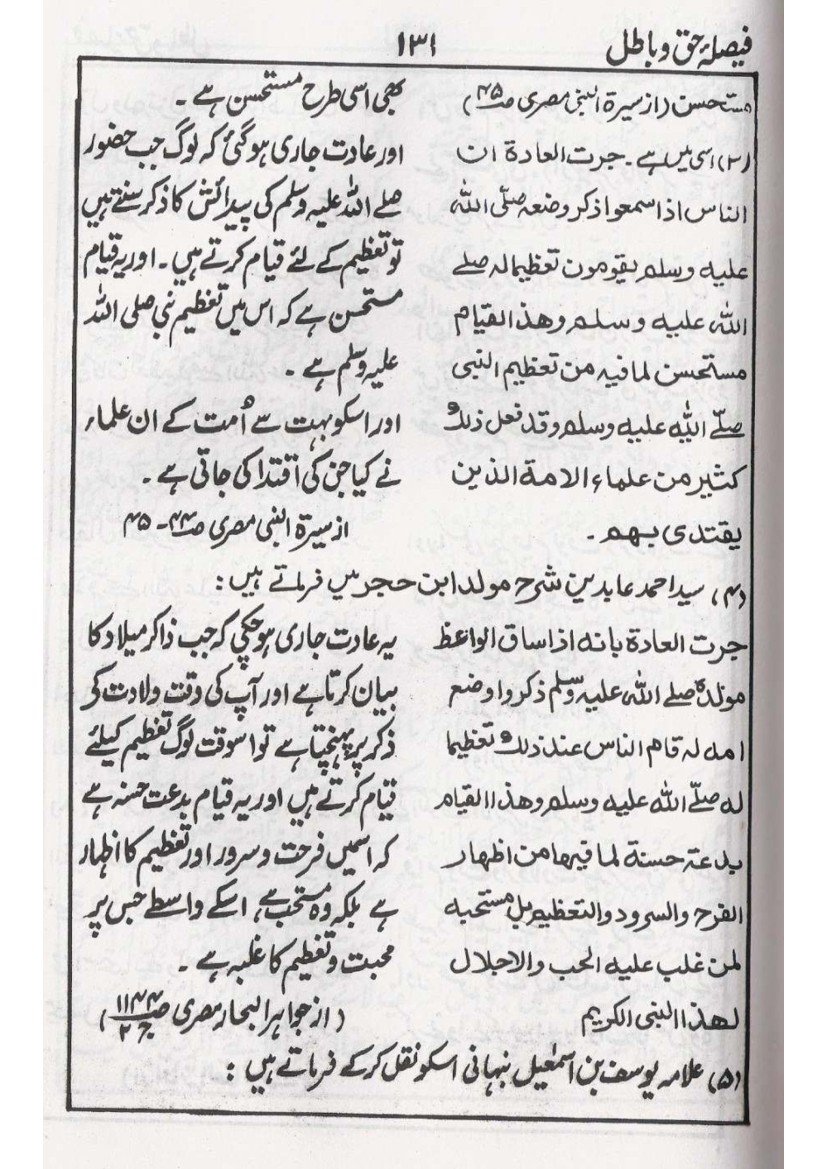 فیصلۂ حق وباطل
۱۳۱
مستحسن (از سیرۃ النبی مصری صـ۴۵)
(۳) اسی میں ہے۔ جرت العادة ان
الناس اذا سمعوا ذکر وضعہ صلّی اللہ
علیہ وسلم یقومون تعظیما لہ صلے
اللہ علیہ وسلم وھذا القیام
مستحسن لما فیہ من تعظیم النبی
صلّے اللہ علیہ وسلم وقد فعل ذلک
کثیر من علماء الامة الذین
یقتدی بہم۔
بھی اسی طرح مستحسن ہے۔
اور عادت جاری ہوگئی کہ لوگ جب حضور
صلے اللہ علیہ وسلم کی پیدائش کا ذکر سنتے ہیں
تو تعظیم کے لئے قیام کرتے ہیں۔ اور یہ قیام
مستحسن ہے کہ اس میں تعظیم نبی صلی اللہ
علیہ وسلم ہے۔
اور اسکو بہت سے اُمت کے ان علماء
نے کیا جن کی اقتدا کی جاتی ہے۔
از سیرۃ النبی مصری صـ۴۴-۴۵
(۴) سید احمد عابدین شرح مولد ابن حجر میں فرماتے ہیں:
جرت العادة بانہ اذا ساق الواعظ
مولدہ صلے اللہ علیہ وسلم ذکروا وضع
امہ لہ قام الناس عند ذلک تعظیما
لہ صلّے اللہ علیہ وسلم وھذا القیام
بدعة حسنة لما فیہا من اظہار
الفرح والسرود والتعظیم بل مستحبہ
لمن غلب علیہ الحب والاجلال
لھذا النبی الکریم
یہ عادت جاری ہوچکی کہ جب ذاکر میلاد کا
بیان کرتا ہے اور آپ کی وقت ولادت کی
ذکر پر پہنچتا ہے تو اسوقت لوگ تعظیم کیلئے
قیام کرتے ہیں اور یہ قیام بدعت حسنہ ہے
کہ اسمیں فرحت وسرور اور تعظیم کا اظہار
ہے بلکہ وہ مستحب ہے، اسکے واسطے جس پر
محبت وتعظیم کا غلبہ ہے۔
(از جواہر البحار مصری صـ۱۱۴۴ ج۲)
(۵) علامہ یوسف بن اسمٰعیل نبہانی اسکو نقل کرکے فرماتے ہیں: